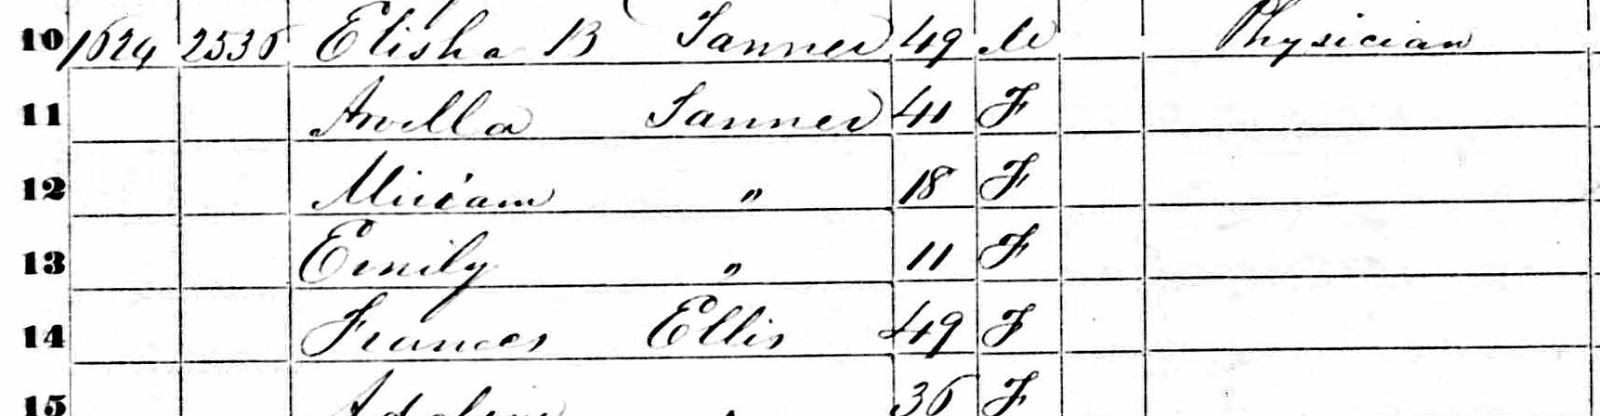 10 1624 2536 Elisha B Tanner 49 M Physician
11 Arvilla Tanner 41 F
12 Miriam " 18 F
13 Emily " 11 F
14 Frances Ellis 49 F
15 36 F